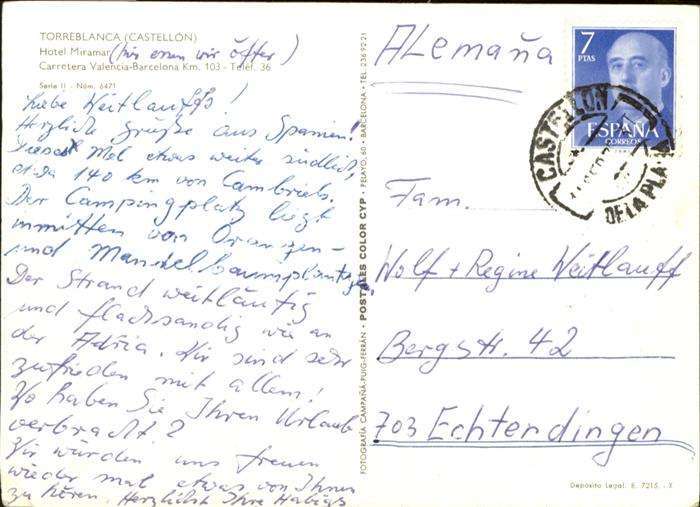 TORREBLANCA (CASTELLÓN)
Hotel Miramar (hier essen wir öfter)
Carretera Valencia-Barcelona Km. 103 - Teléf. 36
Serie II - Núm. 6471
Liebe Weitlauffs!
Herzliche Grüße aus Spanien!
Dieses Mal etwas weiter südlich,
etwa 140 km von Cambrils.
Der Campingplatz liegt
inmitten von Orangen-
und Mandelbaumplantage.
Der Strand weitläufig
und flachsandig wie an
der Adria. Wir sind sehr
zufrieden mit allem!
Wo haben Sie Ihren Urlaub
verbracht?
Wir würden uns freuen
wieder mal etwas von Ihnen
zu hören. Herzlichst Ihre
FOTOGRAFÍA CAMPAÑÁ-PUIG-FERRÁN - POSTALES COLOR CYP - PELAYO, 60 - BARCELONA - TEL. 236 92 21
Alemaña
7
PTAS
ESPAÑA
CORREOS
CASTELLON
DE LA PLANA
Fam.
Wolf + Regine Weitlauff
Bergstr. 42
703 Echterdingen
Depósito Legal. B. 7215. - X